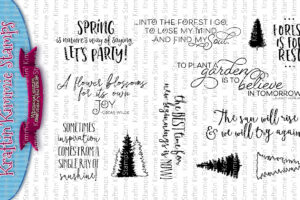 Kraftin Kimmie Stamps
SPRING
is nature's way of saying
LET'S PARTY!
...INTO THE FOREST I GO,
TO LOSE MY MIND
AND FIND MY
Soul.
FOREST
IS FOR
REST
A flower blossoms
for its own
JOY
TO PLANT A
garden
IS TO
believe
IN TOMORROW
the best time for
new beginnings is NOW
SOMETIMES
inspiration
COMES FROM A
SINGLE RAY OF
sunshine!
The sun will rise
& we will try again